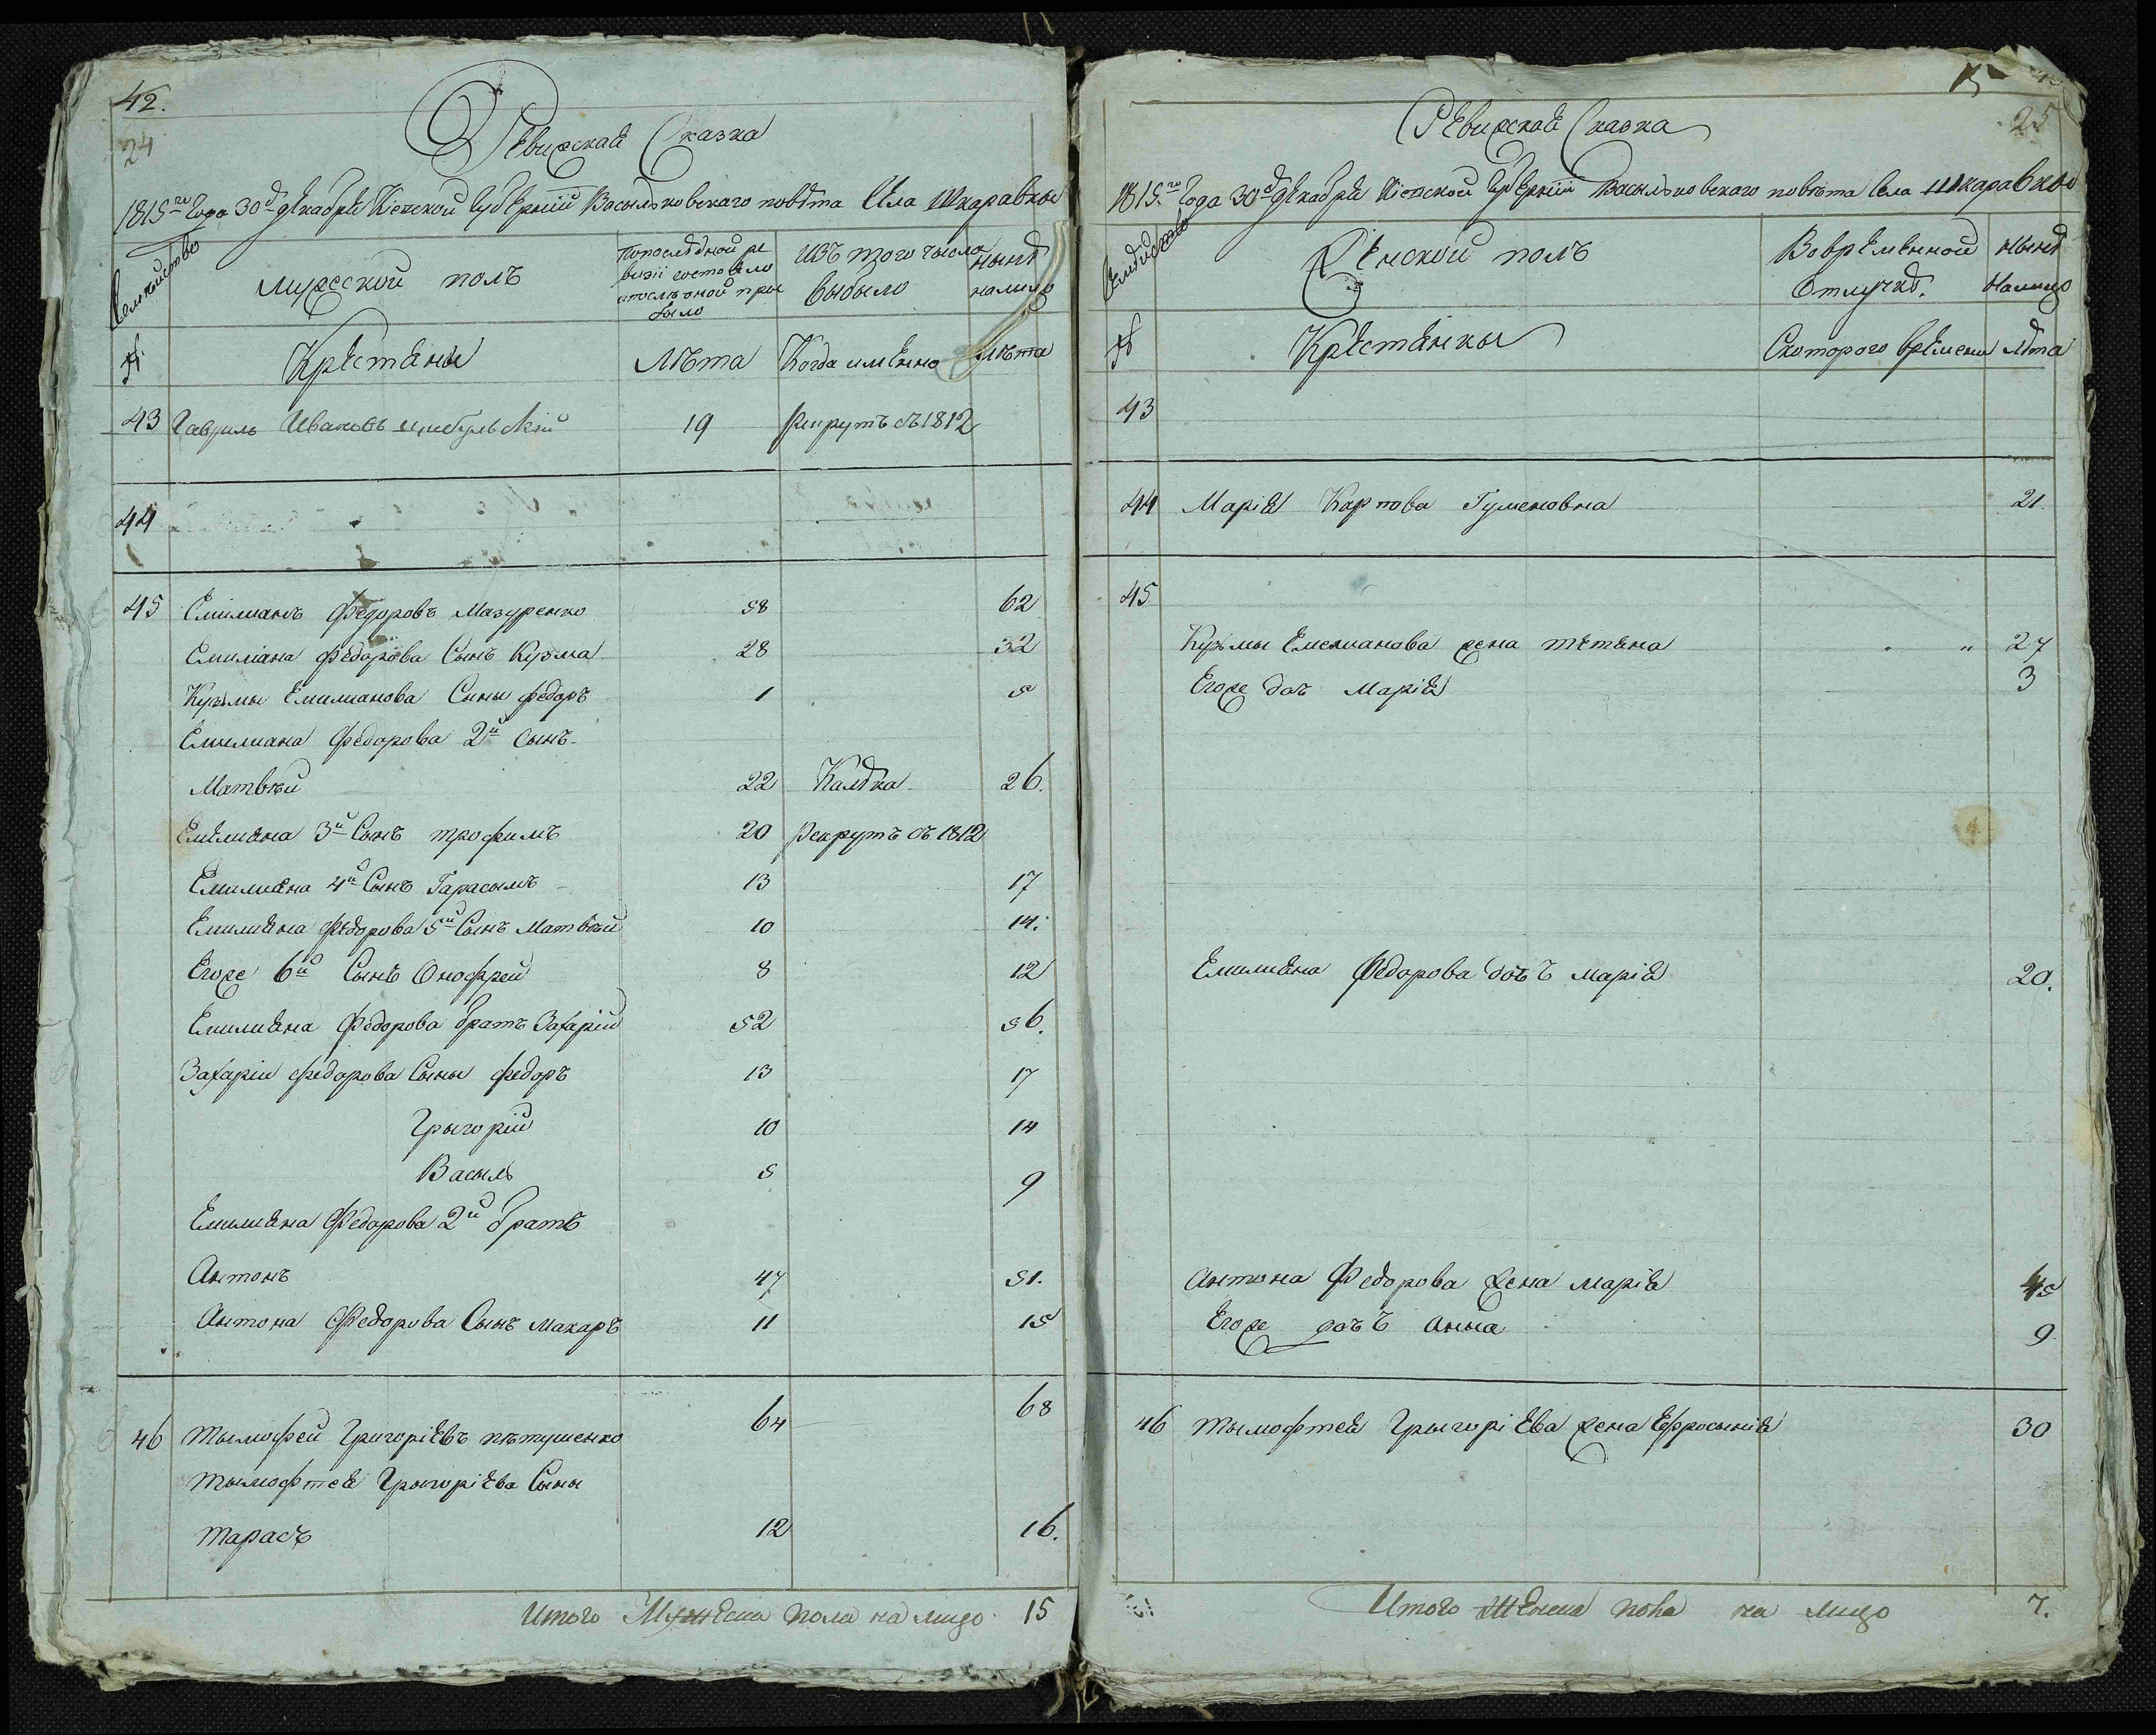 42.
24
Ревижская Сказка
1815го Года 30д декабря Кіевской Губерніи Васыльковскаго повѣта Села Шкаравкы
Семейство
мужеской полъ
Попослѣдной ре
визіи состояло
ипослѣ оной при
было
Изъ того числа
выбыло
нынѣ
налицо
№.
Крестяны
Лѣта
Когда именно
Лѣта
43 Гаврыль Ивановъ Цыбульскій 19 Рекрутъ съ 1812
44
45 Емилианъ Федоровъ Мазуренко 58 62
Емиліана Федорова Сынъ Кузма 28 32
Кузьмы Емилианова Сыны Федоръ 1 5
Емилиана Федорова 2й сынъ
Матвѣй 22 Калѣка 26.
Емиляна 3й Сынъ трофимъ 20 Рекрутъ съ 1812
Емиляна 4й Сынъ Гарасымъ 13 17
Емиляна Федорова 5й Сынъ Матвѣй 10 14.
Егоже 6й Сынъ Онофрей 8 12
Емиляна Федорова братъ Захарій 52 56.
Захарія Федорова Сыны Федоръ 13 17
Грыгорій 10 14
Васыль 5 9
Емиляна Федорова 2й братъ
Антонъ 47 51.
Антона Федорова Сынъ Макаръ 11 15
46 Тымофей Григоріевъ Пѣтушенко 64 68
Тымофтея Грыгоріева Сыны
Тарасъ 12 16.
Итого Мужеска пола на лицо 15
15
25
Ревижская Сказка
1815го Года 30д декабря Кіевской Губерніи Васыльковскаго повѣта Села Шкаравкы
Семейство
Женской полъ
Вовременной
Отлучкѣ.
Нынѣ
Налицо
№
Крестянкы
Скоторого времени
Лѣта
43
44 Марія Карпова Гуменовна 21.
45
Кузьмы Емелианова жена Тетяна " 27
Егоже доч Марія 3
Емиляна Федорова дочъ Марія 20.
Антона Федорова жена Марія 45
Егоже дочъ Анна 9
46 Тымофтея Грыгоріева жена Ефросынія 30
Итого Женска пола на лицо 7.